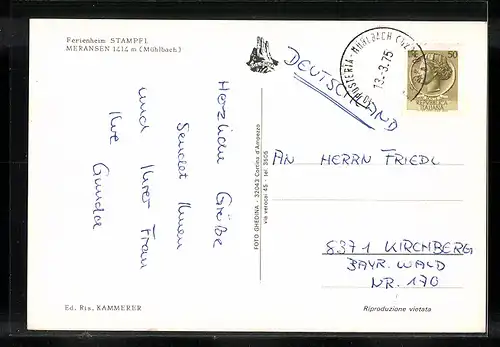 Ferienheim STAMPFL
MERANSEN 1414 m (Mühlbach)
Herzliche Grüße
Sendet Ihnen
und Ihrer Frau
Ihre Gunda
Ed. Ris. KAMMERER
FOTO GHEDINA - 32043 Cortina d'Ampezzo
via verocai 45 - tel. 3605
DEUTSCHLAND
MÜHLBACH
13.3.75
50
REPVBBLICA
ITALIANA
AN HERRN FRIEDL
8371 KIRCHBERG
BAYR. WALD
NR. 170
Riproduzione vietata